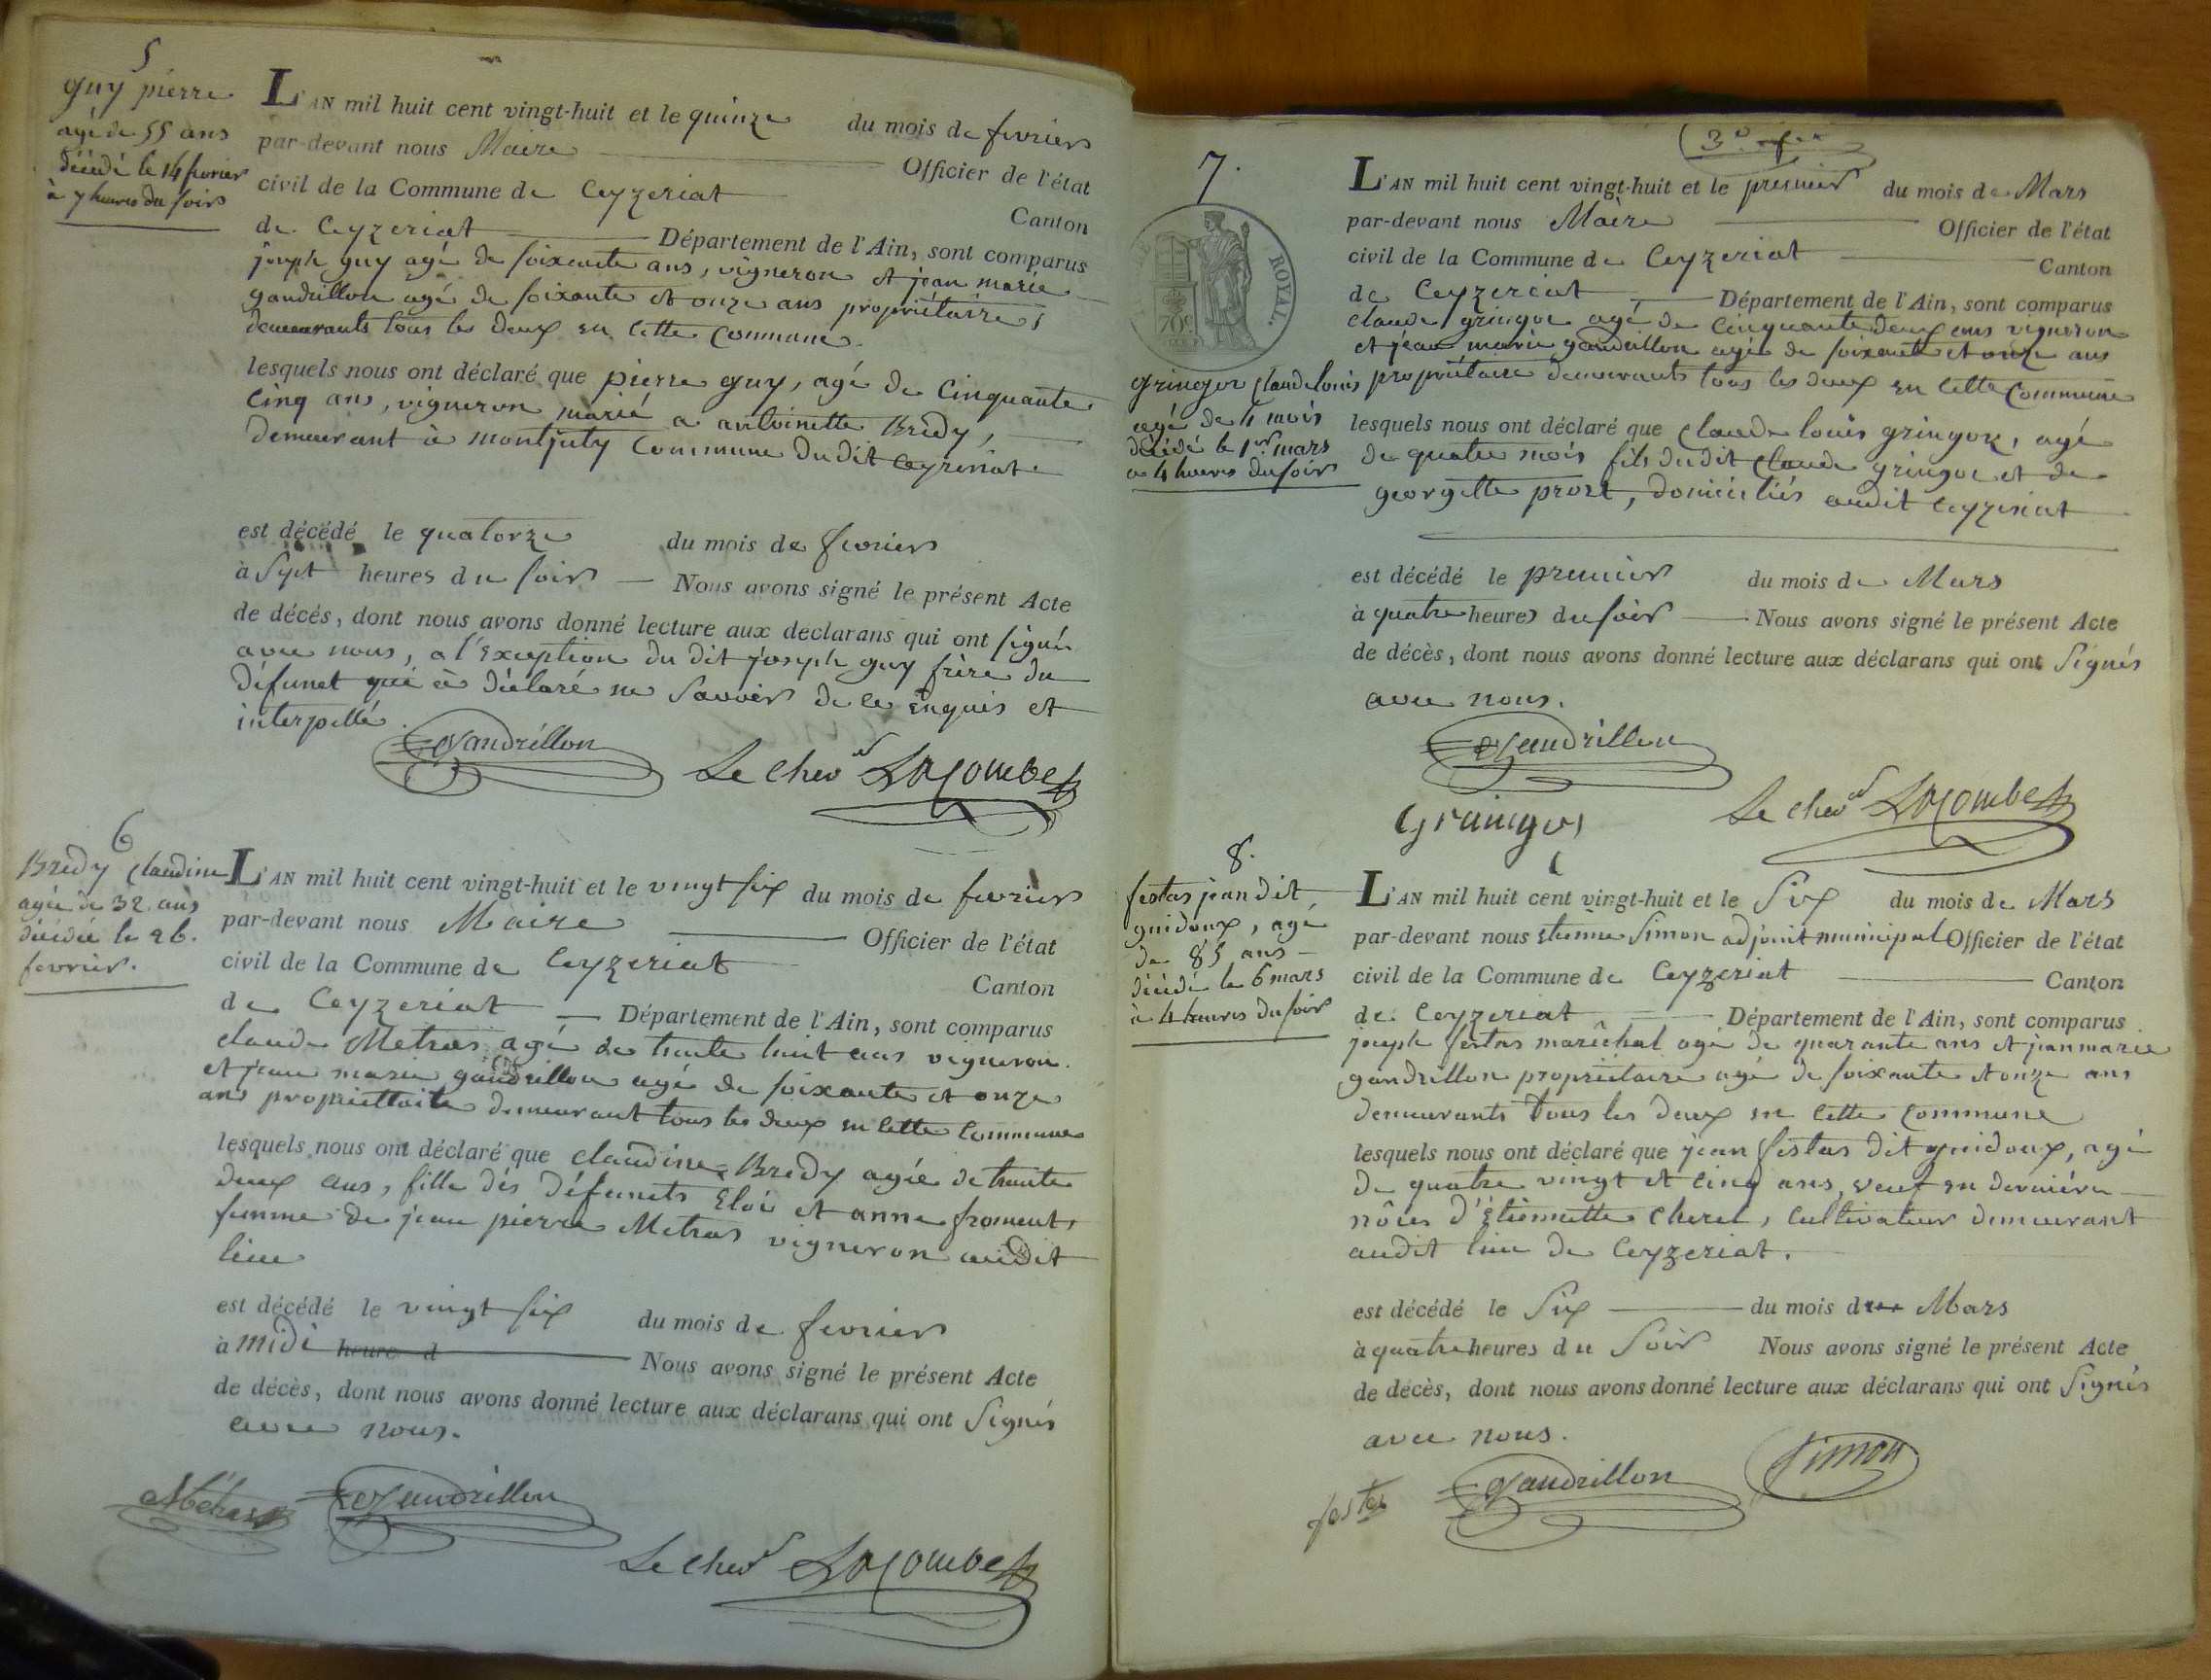 5
guy pierre
agé de 55 ans
décédé le 14 fevrier
à 7 heures du soir
L'AN mil huit cent vingt-huit et le quinze du mois de fevrier
par-devant nous Maire Officier de l'état
civil de la Commune de Ceyzeriat Canton
de Ceyzeriat Département de l'Ain, sont comparus
joseph guy agé de soixante ans, vigneron et jean marie
gandrillon agé de soixante et onze ans propriétaire,
demeurants tous les deux en cette commune.
lesquels nous ont déclaré que pierre guy, agé de Cinquante
Cinq ans, vigneron marié a antoinette Bredy,
demeurant à montjuly Commune dudit Ceyzeriat
est décédé le quatorze du mois de fevrier
à Sept heures du soir Nous avons signé le présent Acte
de décés, dont nous avons donné lecture aux declarans qui ont signé
avec nous, a l'Exception du dit joseph guy frère du
défunct qui a déclaré ne Savoir de ce Enquis et
interpellé.
Gandrillon Le chevr LaCombe
6
Bredy Claudine
agée de 32 ans
décédée le 26.
fevrier.
L'AN mil huit cent vingt-huit et le vingt six du mois de fevrier
par-devant nous Maire Officier de l'état
civil de la Commune de Ceyzeriat Canton
de Ceyzeriat Département de l'Ain, sont comparus
claude Metras agé de trente huit ans vigneron
et jean marie gandrillon agé de soixante et onze
ans propriettaite demeurant tous les deux en cette Commune
lesquels nous ont déclaré que claudine Bredy agée de trente
deux ans, fille des défuncts Eloi et anne froment,
femme de jean pierre Metras vigneron audit
lieu
est décédé le vingt six du mois de fevrier
à midi heure d Nous avons signé le présent Acte
de décès, dont nous avons donné lecture aux déclarans qui ont Signés
avec nous.
Métras Gandrillon
Le chevr LaCombe
3e f
7.
ROYAL.
70c
gringoz Claude louis
agé de 4 mois
décédé le 1er mars
a 4 heures du soir
L'AN mil huit cent vingt-huit et le premier du mois de Mars
par-devant nous Maire Officier de l'état
civil de la Commune de Ceyzeriat Canton
de Ceyzeriat Département de l'Ain, sont comparus
claude gringoz agé de Cinquante deux ans vigneron
et jean marie gandrillon agé de soixante et onze ans
propriétaire demeurants tous les deux en cette Commune
lesquels nous ont déclaré que claude louis gringoz, agé
de quatre mois fils dudit Claude gringoz et de
georgette prost, domiciliés audit Ceyzeriat
est décédé le premier du mois de Mars
à quatre heures du soir Nous avons signé le présent Acte
de décès, dont nous avons donné lecture aux déclarans qui ont Signés
avec nous.
Gandrillon
Le chevr LaCombe
8.
festas jean dit
guidoux, agé
de 85 ans
décédé le 6 mars
à 4 heures du soir
L'AN mil huit cent vingt-huit et le Six du mois de Mars
par-devant nous etienne Simon adjoint municipal Officier de l'état
civil de la Commune de Ceyzeriat Canton
de Ceyzeriat Département de l'Ain, sont comparus
joseph festas maréchal agé de quarante ans et jean marie
gandrillon propriétaire agé de soixante et onze ans
demeurants tous les deux en cette Commune
lesquels nous ont déclaré que jean festas dit guidoux, agé
de quatre vingt et Cinq ans, veuf en dernière
nôces d'Etiennette Cheret, Cultivateur demeurant
audit lieu de Ceyzeriat.
est décédé le Six du mois de Mars
à quatre heures du Soir Nous avons signé le présent Acte
de décès, dont nous avons donné lecture aux déclarans qui ont Signés
avec nous.
festas Gandrillon Simon